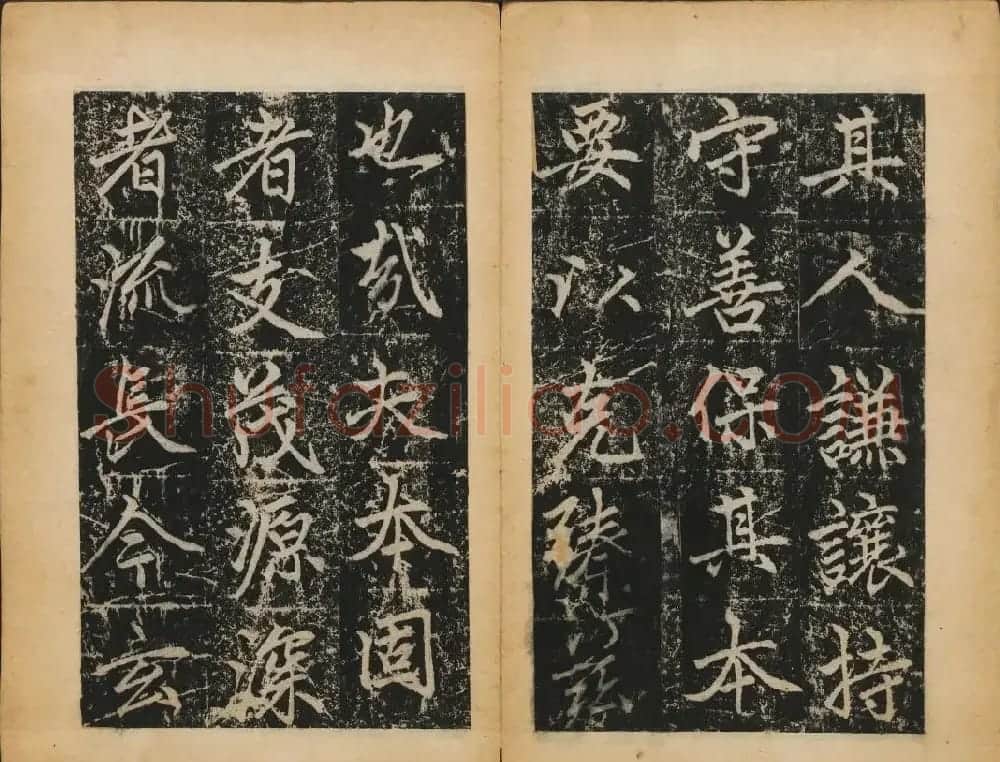 其人謙讓持
守善保其本
要以克臻茲
也哉夫本固
者支茂源深
者流長今玄
Shufaziliao.COM